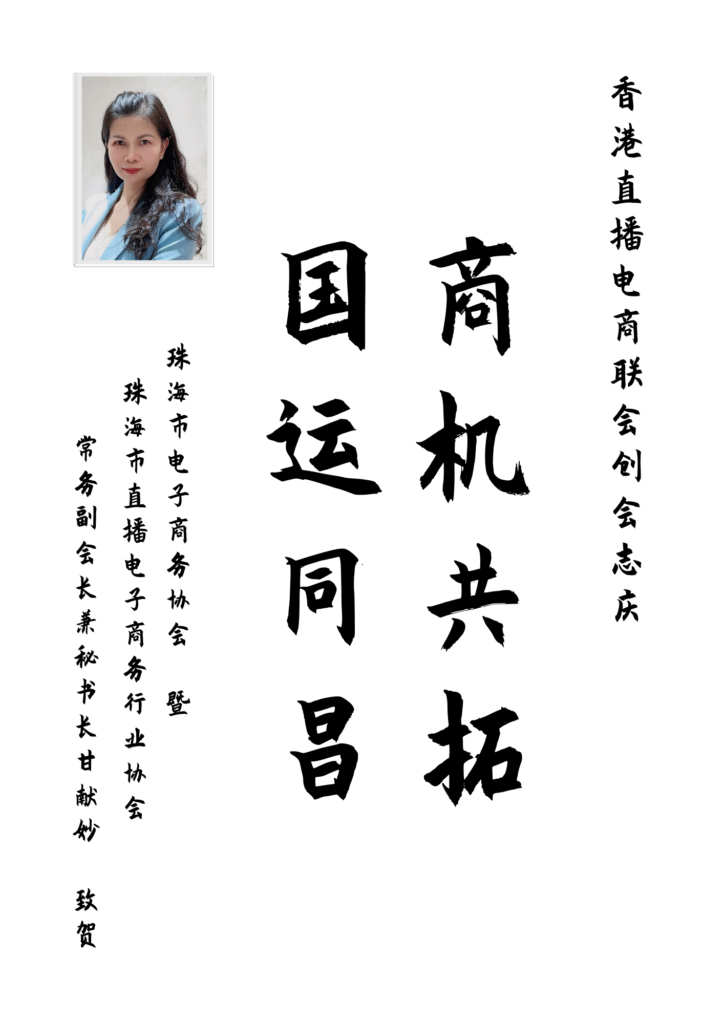 香港直播电商联会创会志庆
商机共拓
国运同昌
珠海市电子商务协会 暨
珠海市直播电子商务行业协会
常务副会长兼秘书长甘献妙 致贺